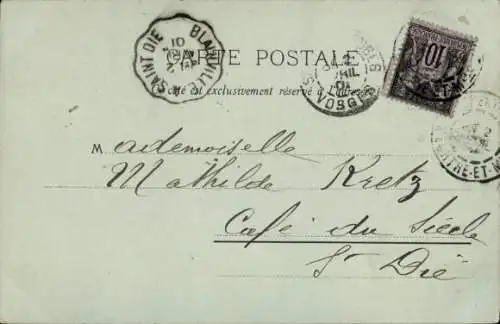 SAINT DIE BLAINVILLE
01
CARTE POSTALE
Ce côté est exclusivement réservé à l'adresse
VOSGES
10
Mademoiselle
Mathilde Kretz
Café du Siècle
St Dié